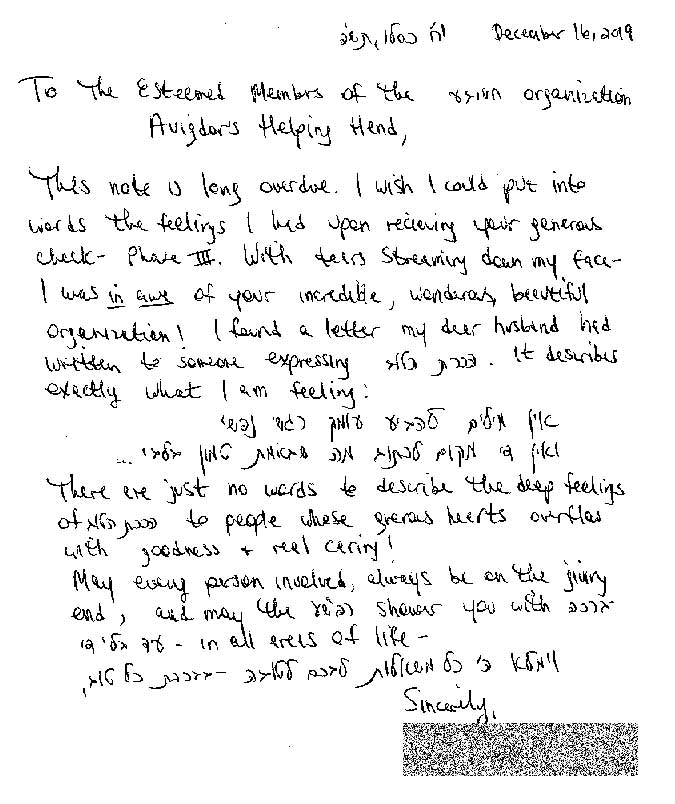 יח כסלו, תש״פ December 16, 2019
To The Esteemed Members of the organization
Avigdor's Helping Hend,
This note is long overdue. I wish I could put into
words the feelings I had upon recieving your generous
check- Phase III. With tears streaming down my face-
I was in awe of your incredible, wonderous, beautiful
organization! I found a letter my dear husband had
written to someone expressing הכרת הטוב. It describes
exactly what I am feeling:
אין מילים להביע עומק רגשי נפשי
ואין די מקום לכתוב מה
There are just no words to describe the deep feelings
of הכרת הטוב to people whose generous hearts overflow
with goodness + real caring!
May every person involved, always be on the giving
end, and may the shower you with ברכה
עד בלי די - in all areas of life-
וימלא ה' כל משאלות לבכם לטובה - בברכת כל טוב,
Sincerely,